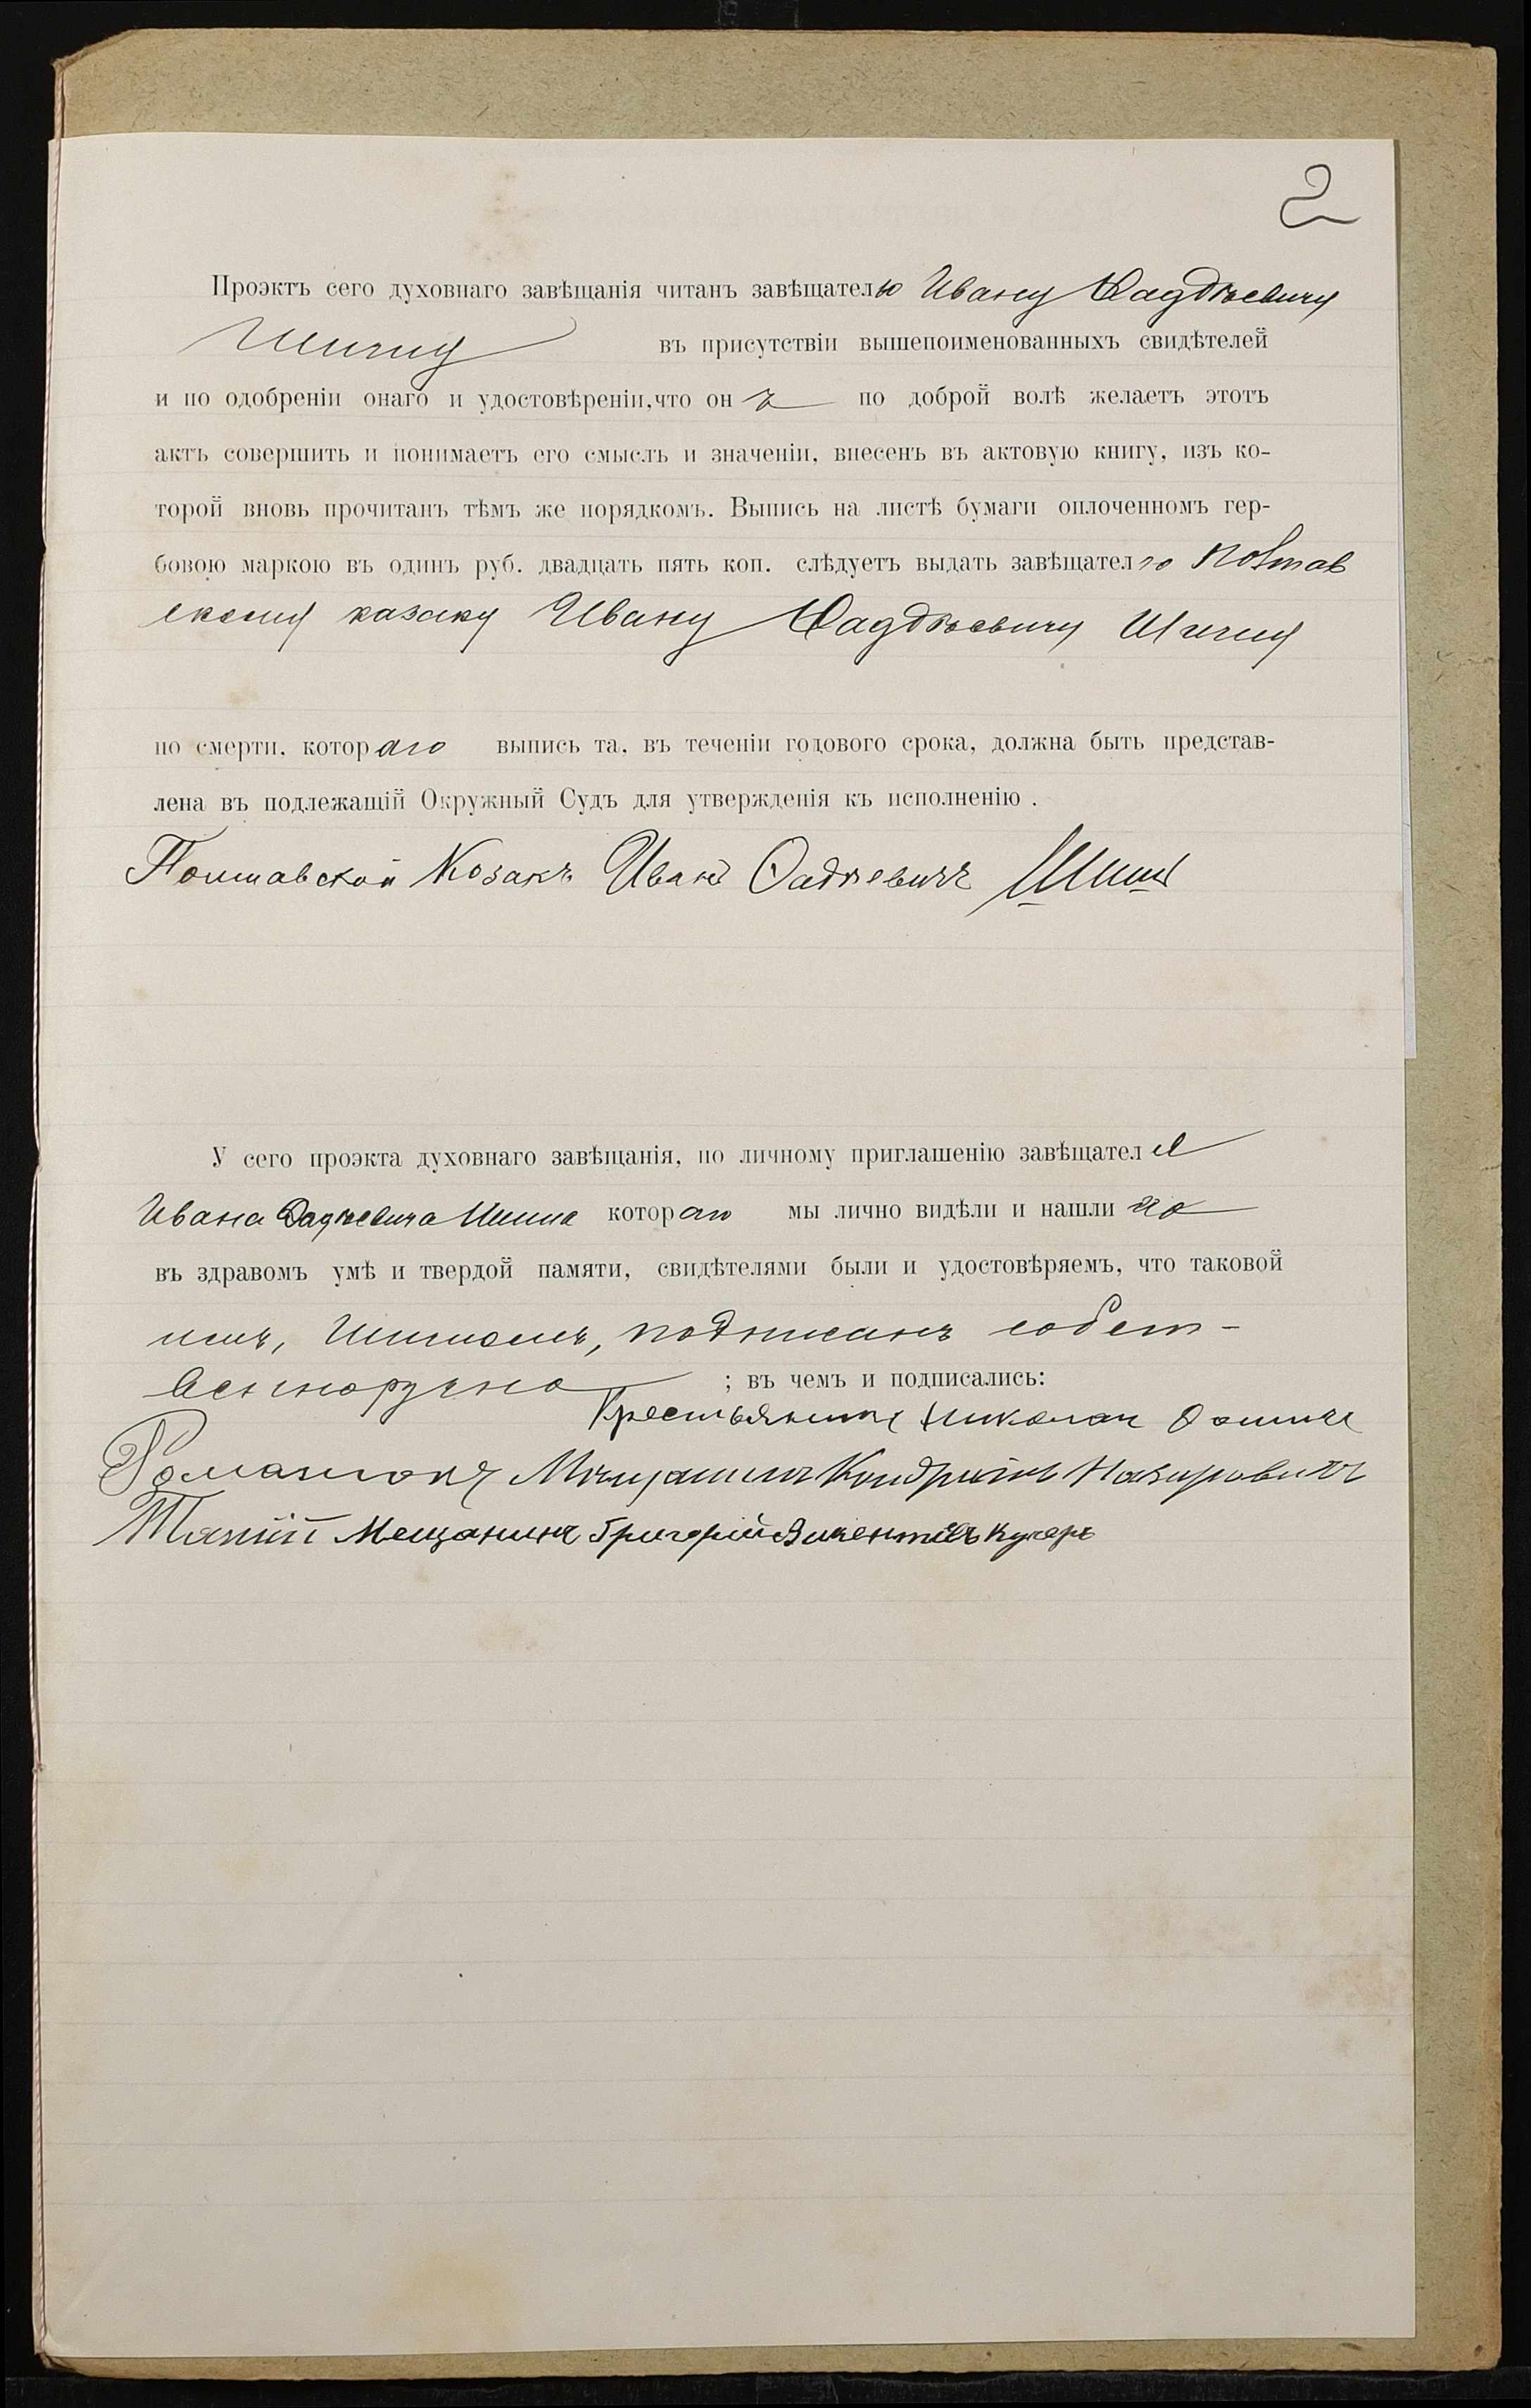 2
Проэктъ сего духовнаго завѣщанія читанъ завѣщателю Ивану Фаддѣевичу
Шишу въ присутствіи вышепоименованныхъ свидѣтелей
и по одобреніи онаго и удостовѣреніи, что онъ по доброй волѣ желаетъ этотъ
актъ совершить и понимаетъ его смыслъ и значеніи, внесенъ въ актовую книгу, изъ ко-
торой вновь прочитанъ тѣмъ же порядкомъ. Выпись на листѣ бумаги оплоченномъ гер-
бовою маркою въ одинъ руб. двадцать пять коп. слѣдуетъ выдать завѣщателю полтав
скому казаку Ивану Фаддѣевичу Шишу
по смерти, котораго выпись та, въ теченіи годового срока, должна быть представ-
лена въ подлежащій Окружный Судъ для утвержденія къ исполненію.
Полтавской Козакъ Иванъ Фадѣевичъ
У сего проэкта духовнаго завѣщанія, по личному приглашенію завѣщателя
Ивана Фадѣевича Шиша котораго мы лично видѣли и нашли его
въ здравомъ умѣ и твердой памяти, свидѣтелями были и удостовѣряемъ, что таковой
имъ, Шишомъ, подписанъ собст-
венноручно ; въ чемъ и подписались:
Крестьянинъ Николай Фомичъ
Романюкъ Мѣщанинъ Кондратій Назаровичъ
Мещанинъ Григорій Викентіевъ Кучеръ